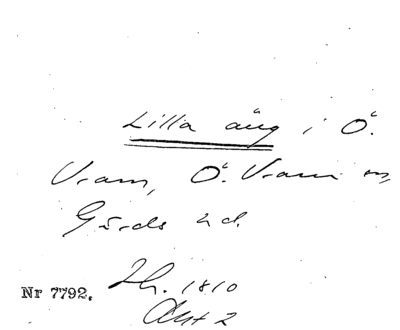 Lilla äng i Ö.
Vram, Ö. Vram sn,
Gärds hd.
Nr 7792. 1810
Akt 2